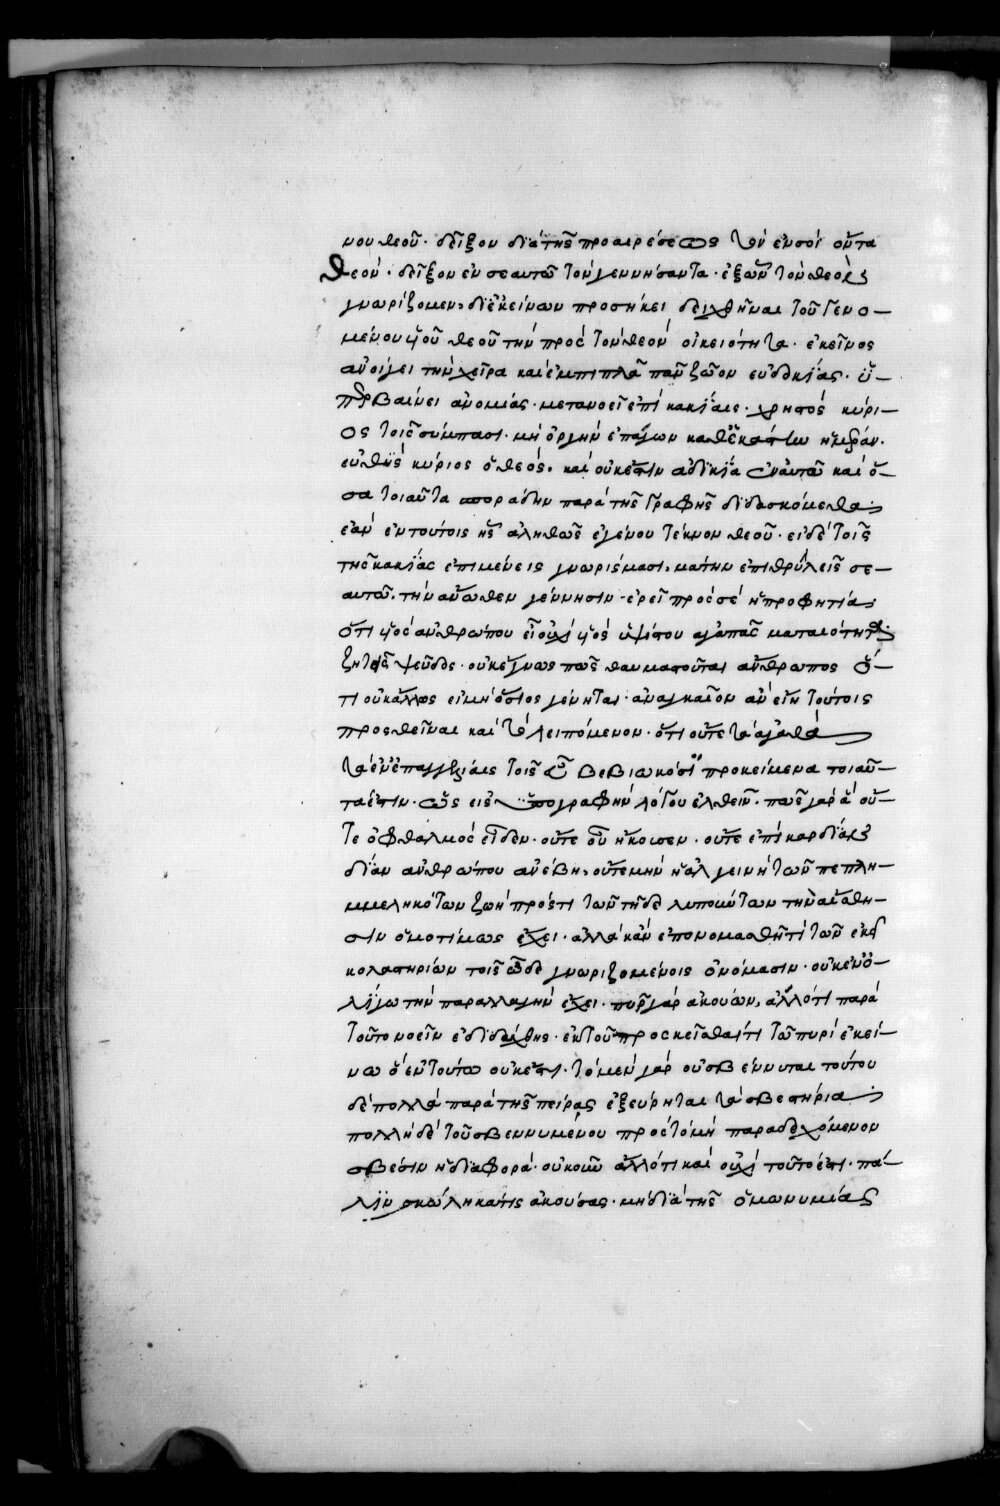 νου θεοῦ· δεῖξον διὰ τῆς προαιρέσεως τὸν ἐν σοὶ ὄντα
θεόν· δεῖξον ἐν σεαυτῶ τὸν γεννήσαντα· ἐξ ὧν τὸν θεὸν
γνωρίζομεν, δι ἐκείνων προσήκει δειχθῆναι τοῦ γενο-
μένου υἱοῦ θεοῦ τὴν πρὸς τὸν θεὸν οἰκειότητα· ἐκεῖνος
ἀνοίγει τὴν χεῖρα καὶ ἐμπιπλᾶ πᾶν ζῶον εὐδοκίας· ὑ-
περβαίνει ἀνομίας· μετανοεῖ ἐπὶ κακίαις· χρηστὸς κύρι-
ος τοῖς σύμπασι· μὴ ὀργὴν ἐπάγων καθ ἑκάστην ἡμέραν·
εὐθὴς κύριος ὁ θεός· καὶ οὐκ ἔστιν ἀδικία ἐν αὐτῶ καὶ ὅ-
σα τοιαῦτα σποράδην παρὰ τῆς γραφῆς διδασκόμεθα·
ἐὰν ἐν τούτοις ἦς ἀληθῶς ἐγένου τέκνον θεοῦ· εἰ δὲ τοῖς
τῆς κακίας ἐπιμένεις γνωρίσμασι, μάτην ἐπιθρυλεῖς σε-
αυτῶ· τὴν ἄνωθεν γέννησιν· ἐρεῖ πρὸς σὲ ἡ προφητία·
ὅτι υἱὸς ἀνθρώπου εἶ οὐχὶ υἱὸς ὑψίστου ἀγαπᾶς ματαιότητα·
ζητεῖς ψεῦδος· οὐκ ἔγνως πῶς θαυματοῦται ἄνθρωπος ὅ-
τι οὐκ ἄλλως εἰ μὴ ὅσιος γένηται· ἀναγκαῖον ἂν εἴη τούτοις
προσθεῖναι καὶ τὸ λειπόμενον· ὅτι οὔτε τὰ ἀγαθὰ
τὰ ἐν ἐπαγγελίαις τοῖς εὖ βεβιωκόσι προκείμενα τοιαῦ-
τά ἐστιν· ὡς εἰς ὑπογραφὴν λόγου ἐλθεῖν· πῶς γὰρ ἃ οὔ-
τε ὀφθαλμὸς εἶδεν· οὔτε οὖς ἤκουσεν· οὔτε ἐπὶ καρδίαν
δίαν ἀνθρώπου ἀνέβη, οὔτε μὴν ἡ ἀλγεινὴ τῶν πεπλη-
μμεληκότων ζωὴ πρός τι τῶν τῆδε λυπούντων τὴν αἴσθη-
σιν ὁμοτίμως ἔχει· ἀλλὰ κἂν ἐπονομασθῆ τὶ τῶν ἐκεῖ
κολαστηρίων τοῖς ὧδε γνωριζομένοις ὀνόμασιν· οὐκ ἐν ὀ-
λίγω τὴν παραλλαγὴν ἔχει· πῦρ γὰρ ἀκούων, ἄλλό τι παρὰ
τοῦτο νοεῖν ἐδιδάχθης· ἐκ τοῦ προσκεῖσθαί τι τῶ πυρὶ ἐκεί-
νω ὃ ἐν τούτω οὐκ ἔστι· τὸ μὲν γὰρ οὐ σβέννυται τούτου
δὲ πολλὰ παρὰ τῆς πείρας ἐξεύρηται τὰ σβεστήρια·
πολλὴ δὲ τοῦ σβεννυμένου πρὸς τὸ μὴ παραδεχόμενον
σβέσιν ἡ διαφορά· οὐκοῦν ἄλλό τι καὶ οὐχὶ τοῦτό ἐστι· πά-
λιν σκώληκά τις ἀκούσας· μὴ διὰ τῆς ὁμωνυμίας